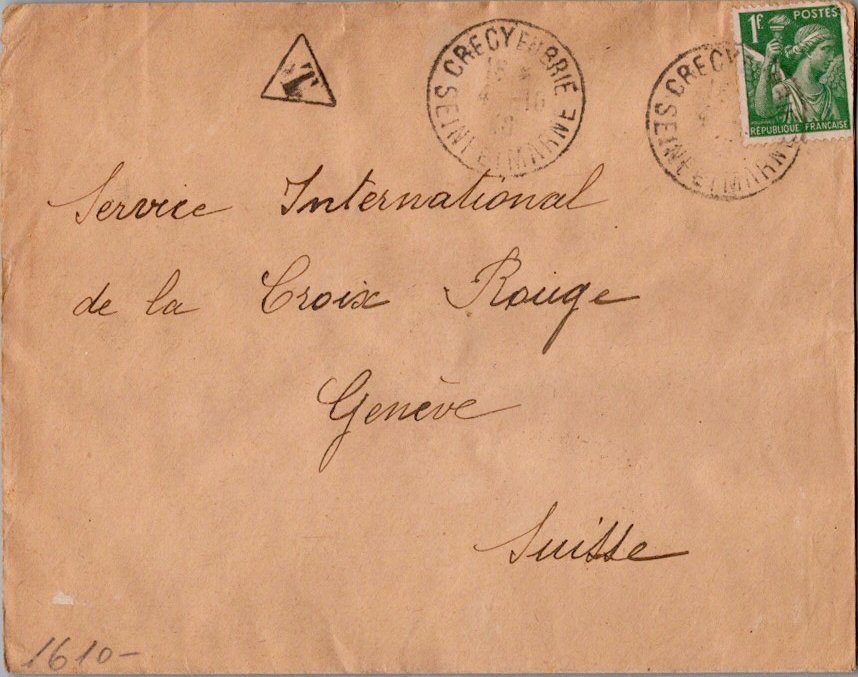 T
CRECY EN BRIE
SEINE ET MARNE
CRECY
SEINE ET MARNE
1F. POSTES
RÉPUBLIQUE FRANÇAISE
Service International
de la Croix Rouge
Genève
Suisse
1610-